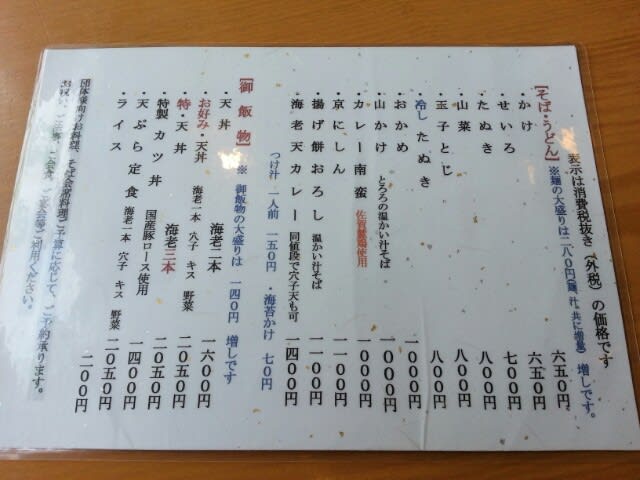 表示は消費税抜き(外税)の価格です
【そば・うどん】※麺の大盛りは二八〇円(麺、汁、共に増量)増しです。
・かけ 六五〇円
・せいろ 六五〇円
・たぬき 七〇〇円
・山菜 八〇〇円
・玉子とじ 八〇〇円
・冷したぬき 八〇〇円
・おかめ 一〇〇〇円
・山かけ とろろの温かい汁そば 一〇〇〇円
・カレー南蛮 使用 一〇〇〇円
・京にしん 一一〇〇円
・揚げ餅おろし 温かい汁そば 一一〇〇円
・海老天カレー 同値段で穴子天も可 一四〇〇円
つけ汁 一人前 一五〇円 ・海苔かけ 七〇円
【御飯物】 ※ 御飯物の大盛りは 一四〇円 増しです
・天丼 海老二本 一六〇〇円
・お好み・天丼 海老一本 穴子 キス 野菜 二〇五〇円
・特・天丼 海老三本 二〇五〇円
・特製カツ丼 国産豚ロース使用 一四〇〇円
・天ぷら定食 海老一本 穴子 キス 野菜 二〇五〇円
・ライス 二〇〇円
団体様向けお料理、そば会席料理ご予算に応じて、ご予約承ります。
お祝い、ご法事、ご会食、ご宴会等ご利用ください。